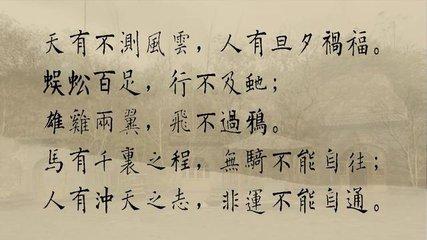 天有不測風雲，人有旦夕禍福。
蜈蚣百足，行不及虵；
雄雞兩翼，飛不過鴉。
馬有千裏之程，無騎不能自往；
人有沖天之志，非運不能自通。